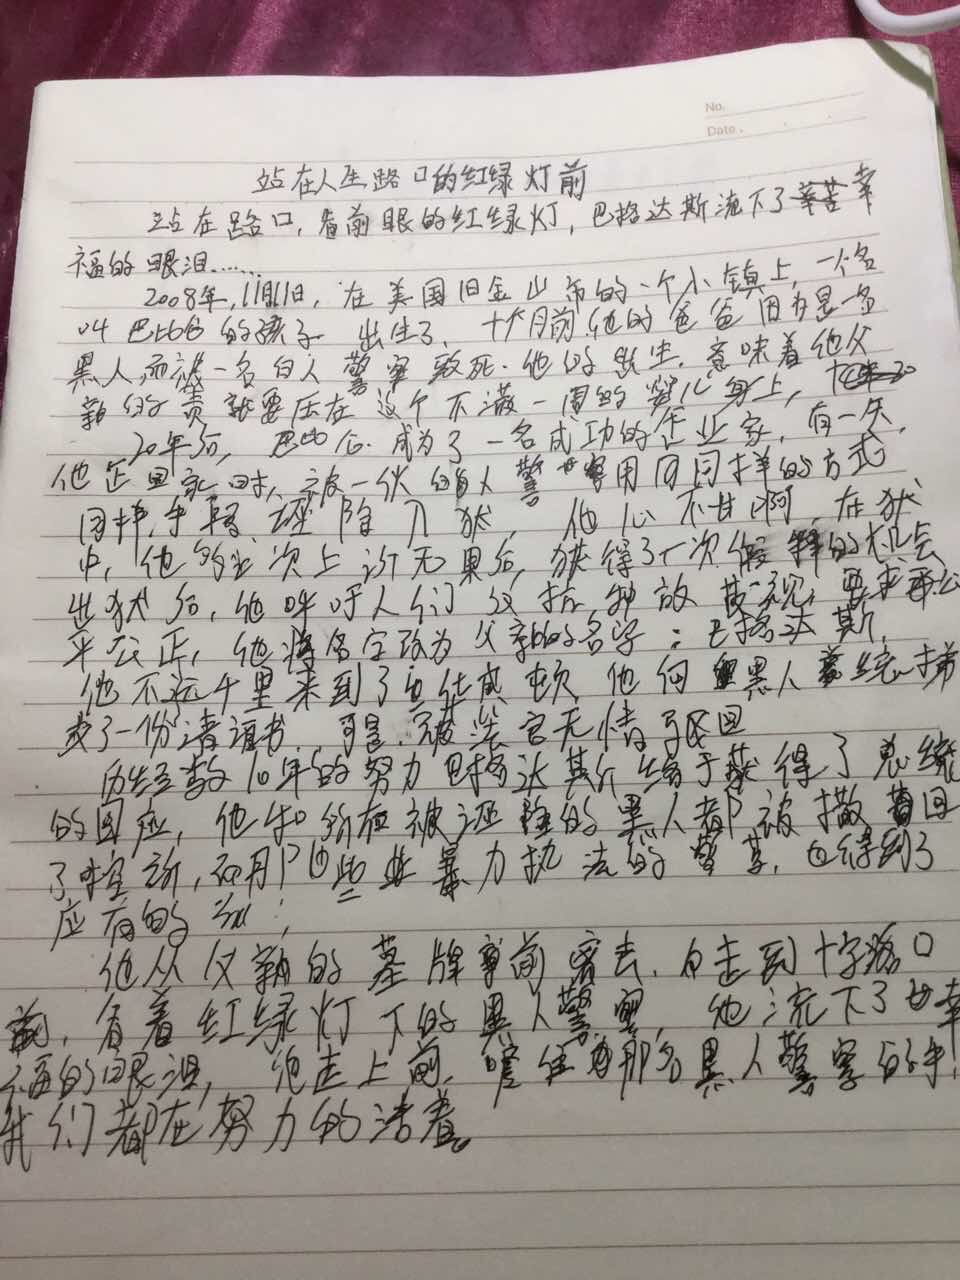 No.
Date.
站在人生路口的红绿灯前
站在路口,看前眼的红绿灯,巴格达斯流下了幸
福的眼泪……
2008年,11月11日,在美国旧金山市的一个小镇上,一个名
叫巴比伦的孩子出生了,十个月前他的爸爸因为是一名
黑人而被一名白人警察致死.他的出生,意味着他父
亲的责就要压在这个不满一周的婴儿身上,
20年后,巴比伦.成为了一名成功的企业家,有一天,
他正回家时,被一伙白人警察用同样的方式
陷入狱,他心不甘啊,在狱
中,他多次上诉无果后,获得了一次假释的机会
出狱后,他呼吁人们反抗种族歧视,要求公
平公正,他将名字改为父亲的名字:巴格达斯,
他不远千里来到了华盛顿,他向黑人总统递
交了一份请谊书.可是.被无情驳回
历经数10年的努力巴格达斯终于获得了总统
的回应,他和所有被诬陷的黑人都被撤回
了控诉,而那些暴力执法的警察,也得到了
应有的
他从父亲的墓牌前离去,走到十字路口
前,看着红绿灯下的黑人警察,他流下了幸
福的眼泪,他走上前,握住那名黑人警察的手,
我们都在努力的活着。